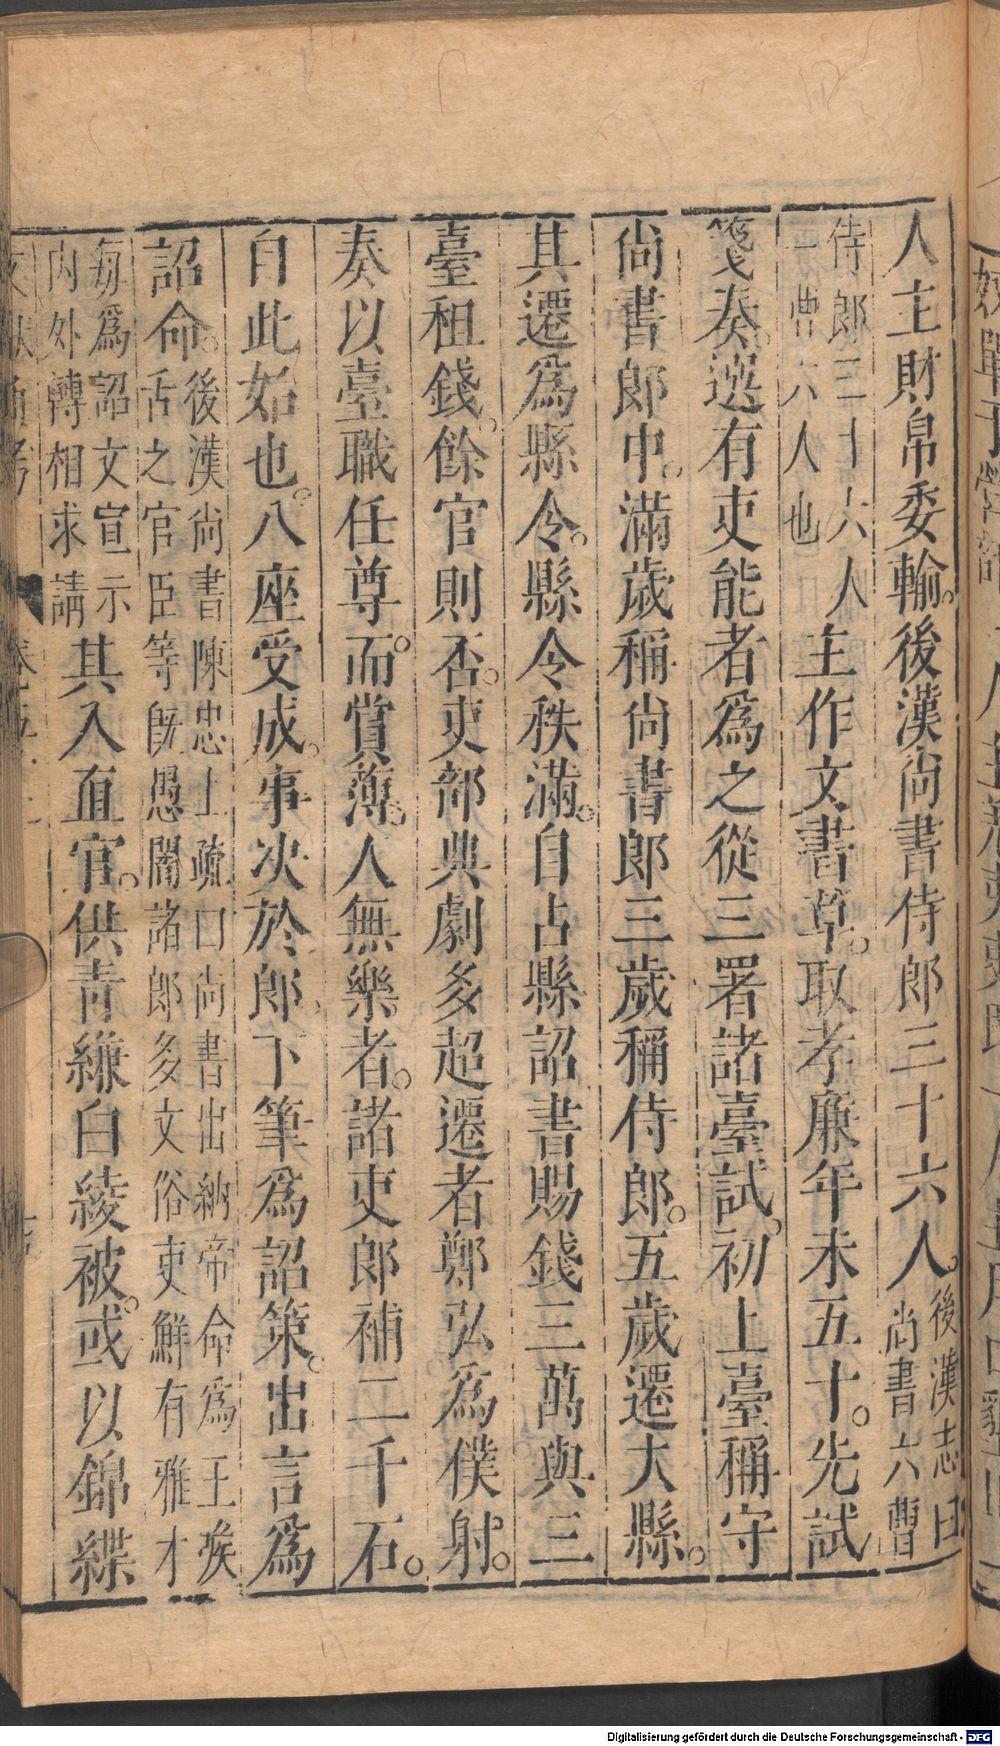 人主財帛委輸。後漢尙書侍郎三十六人。後漢志曰尙書六曹
侍郎三十六人一曹六人也主作文書草。取孝廉年未五十。先試
箋奏。選有吏能者爲之從三署諸臺試。初上臺稱守
尙書郎中。滿歲稱尙書郎三歲稱侍郎。五歲遷大縣。
其遷爲縣令。縣令秩滿。自占縣詔書賜錢三萬與三
臺租錢。餘官則否。吏部典劇多超遷者鄭弘爲僕射。
奏以臺職任尊。而賞薄。人無樂者。諸吏郎補二千石。
自此始也。八座受成。事次於郎。下筆爲詔策。出言爲
詔命。後漢尙書陳忠上疏曰尙書出納帝命爲王喉舌之官臣等旣愚闇諸郎多文俗吏鮮有雅才
每爲詔文宣示內外轉相求請其入直官。供青縑白綾被。或以錦緤
Digitalisierung gefördert durch die Deutsche Forschungsgemeinschaft - DFG